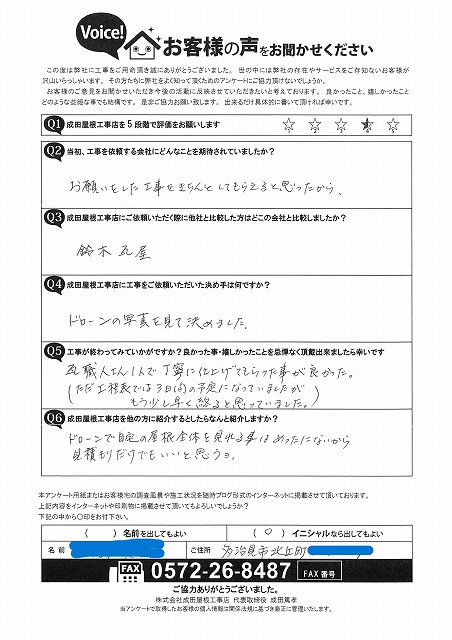 Voice!
お客様の声をお聞かせください
この度は弊社に工事をご用命頂き誠にありがとうございました。世の中には弊社の存在やサービスをご存知ないお客様が
沢山いらっしゃいます。その方たちに弊社をよく知って頂くためのアンケートにご協力頂けないでしょうか。
お客様のご意見をお聞かせいただき今後の活動に反映させていただきたいと考えております。良かったこと、嬉しかったこと
どのような些細な事でも結構です。是非ご協力お願い致します。出来るだけ具体的に書いて頂ければ幸いです。
Q1 成田屋根工事店を5段階で評価をお願いします ☆ ☆ ☆ ☆ ☆
Q2 当初、工事を依頼する会社にどんなことを期待されていましたか?
お願いをした工事をきちんとしてもらえると思ったから、
Q3 成田屋根工事店にご依頼いただく際に他社と比較した方はどこの会社と比較しましたか?
鈴木瓦屋
Q4 成田屋根工事店に工事をご依頼いただいた決め手は何ですか?
ドローンの写真を見て決めました。
Q5 工事が終わってみていかがですか?良かった事・嬉しかったことを忌憚なく頂戴出来ましたら幸いです
瓦職人さん1人で丁寧に仕上げてもらった事が良かった。
(ただ工程表では3日間の予定になっていましたが
もう少し早く終ると思っていました。)
Q6 成田屋根工事店を他の方に紹介するとしたらなんと紹介しますか?
ドローンで自宅の屋根全体を見れる事はめったにないから
見積りだけでもいいと思うヨ。
本アンケート用紙またはお客様宅の調査風景や施工状況を随時ブログ形式のインターネットに掲載させて頂いております。
上記内容をインターネットや印刷物に掲載させて頂いてもよろしいでしょうか?
下記の中から〇印をお付下さい。
( )名前を出してもよい (○)イニシャルなら出してもよい
名前 ご住所 多治見市北丘町
FAX 0572-26-8487 FAX番号
ご協力ありがとうございました。
株式会社成田屋根工事店 代表取締役 成田篤孝
当アンケートで取得したお客様の個人情報は関係法規に基づき厳正に管理いたします。